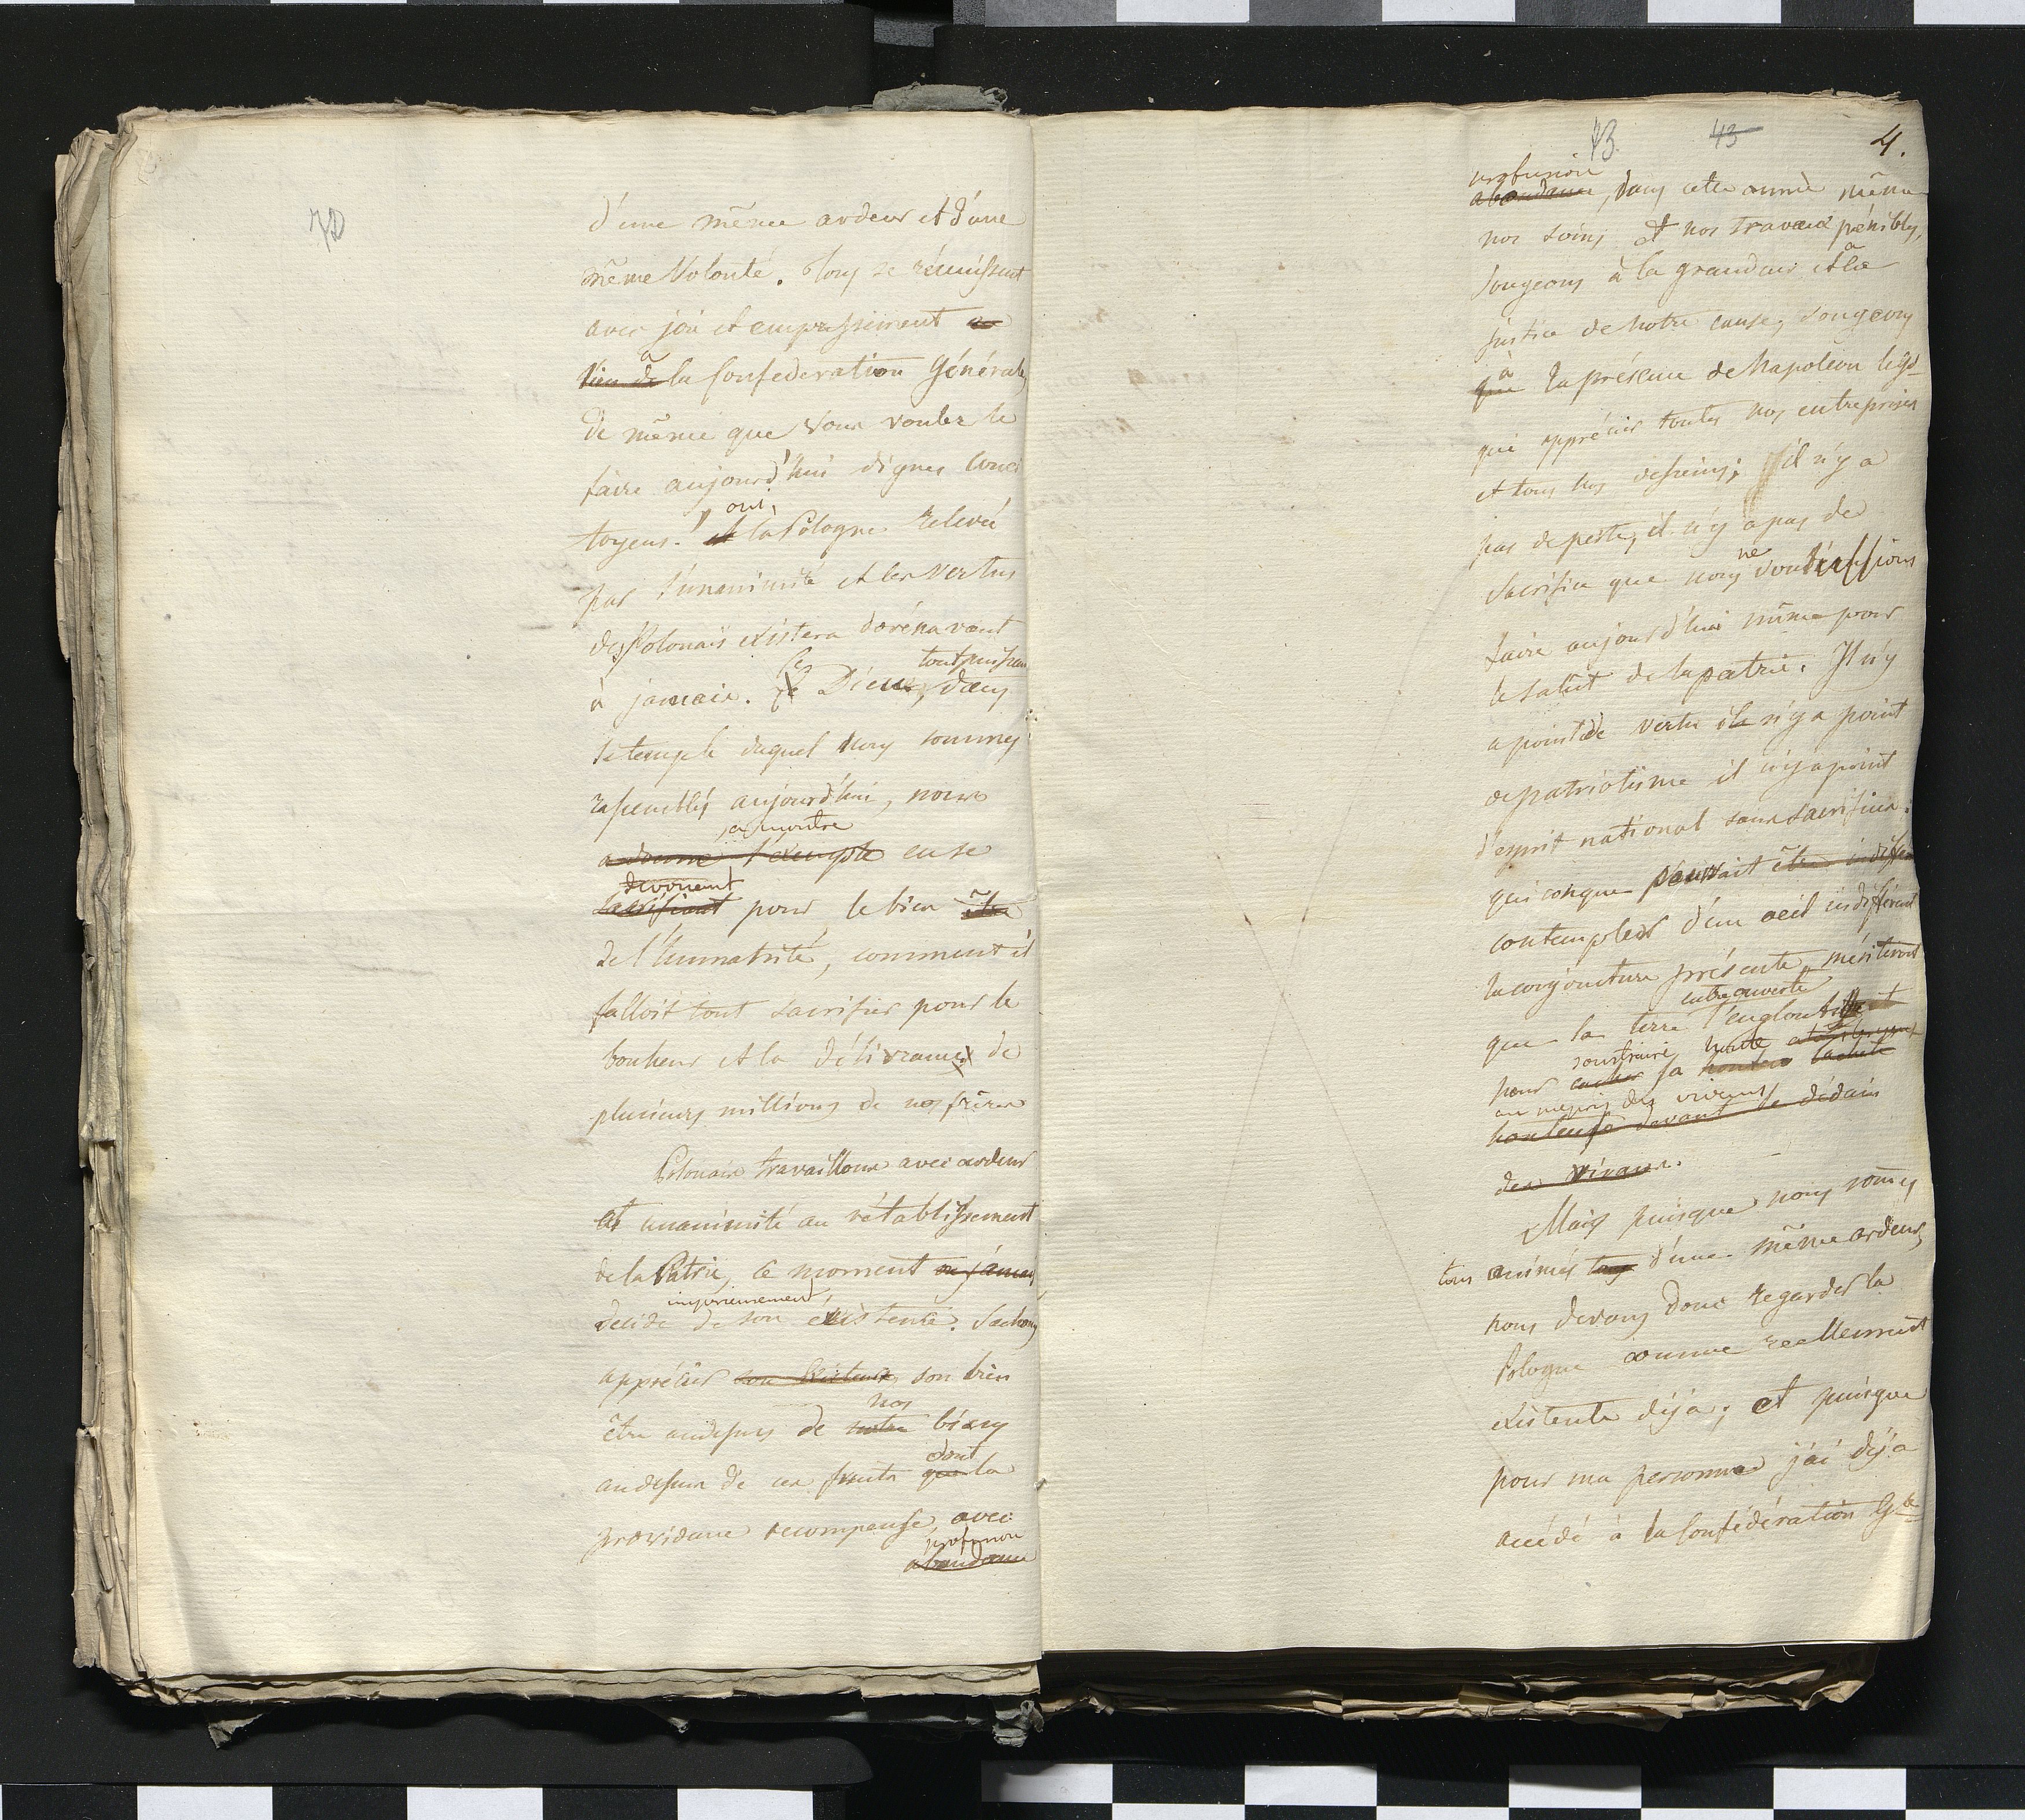 d'une même ardeur et d'une
même Volonté. Tous se réunissent
avec joie et empressement au
lien de à la Confédération Générale,
De même que Vous voulez le
faire aujourd'hui dignes Conci
toyens! et oui, la Pologne relevée
par l'unanimité et les Vertus
des Polonais existera dorénavant
à jamais. Ce Dieu toutpuissant, dans
le temple duquel nous sommes
rassemblés aujourd'hui, nous
a donné l'exemple a montré en se
sacrifiant devouant pour le bien être
de l'humanité, comment il
falloit tout sacrifier pour le
bonheur et la délivrance de
plusieurs millions de nos frères
Polonais travaillons avec ardeur
et unanimité au rétablissement
de la Patrie, ce moment ou jamais
décide impérieusement de son éxistence. Sachons
apprécier son existence son bien
être audessus de notre nos biens
audessus de ces fruits que dont la
providence recompense avec
abondance profusion
43. 43 4.
abondance profusion, dans cette année même
nos soins et nos travaux pénibles,
Songeons à la grandeur et à la
justice de notre cause, songeons
que à la présence de Napoléon le gd
qui apprécie toutes nos entreprises
et tous nos desseins; il n'y a
pas de perte, il n'y a pas de
Sacrifice que nous ne voudrissions
faire aujourd'hui même pour
le salut de la patrie. Il n'y
a point de vertu il n'y a point
de patriotisme il n'y a point
d'esprit national sans sacrifices.
quiconque pouvait être indifférent
contempler d'un oeil indifférent
la conjoncture présente, mériteroit
que la terre entreouverte l'engloutit
pour cacher soustraire sa honte
au mépris des vivans
honteuse devant le dédain
des vivans.
Mais puisque nous somes
tous animés tous d'une même ardeur,
nous devons donc regarder la
Pologne comme reellement
existente déja; et puisque
pour ma personne j'ai déja
accédé à la Confédération Gle